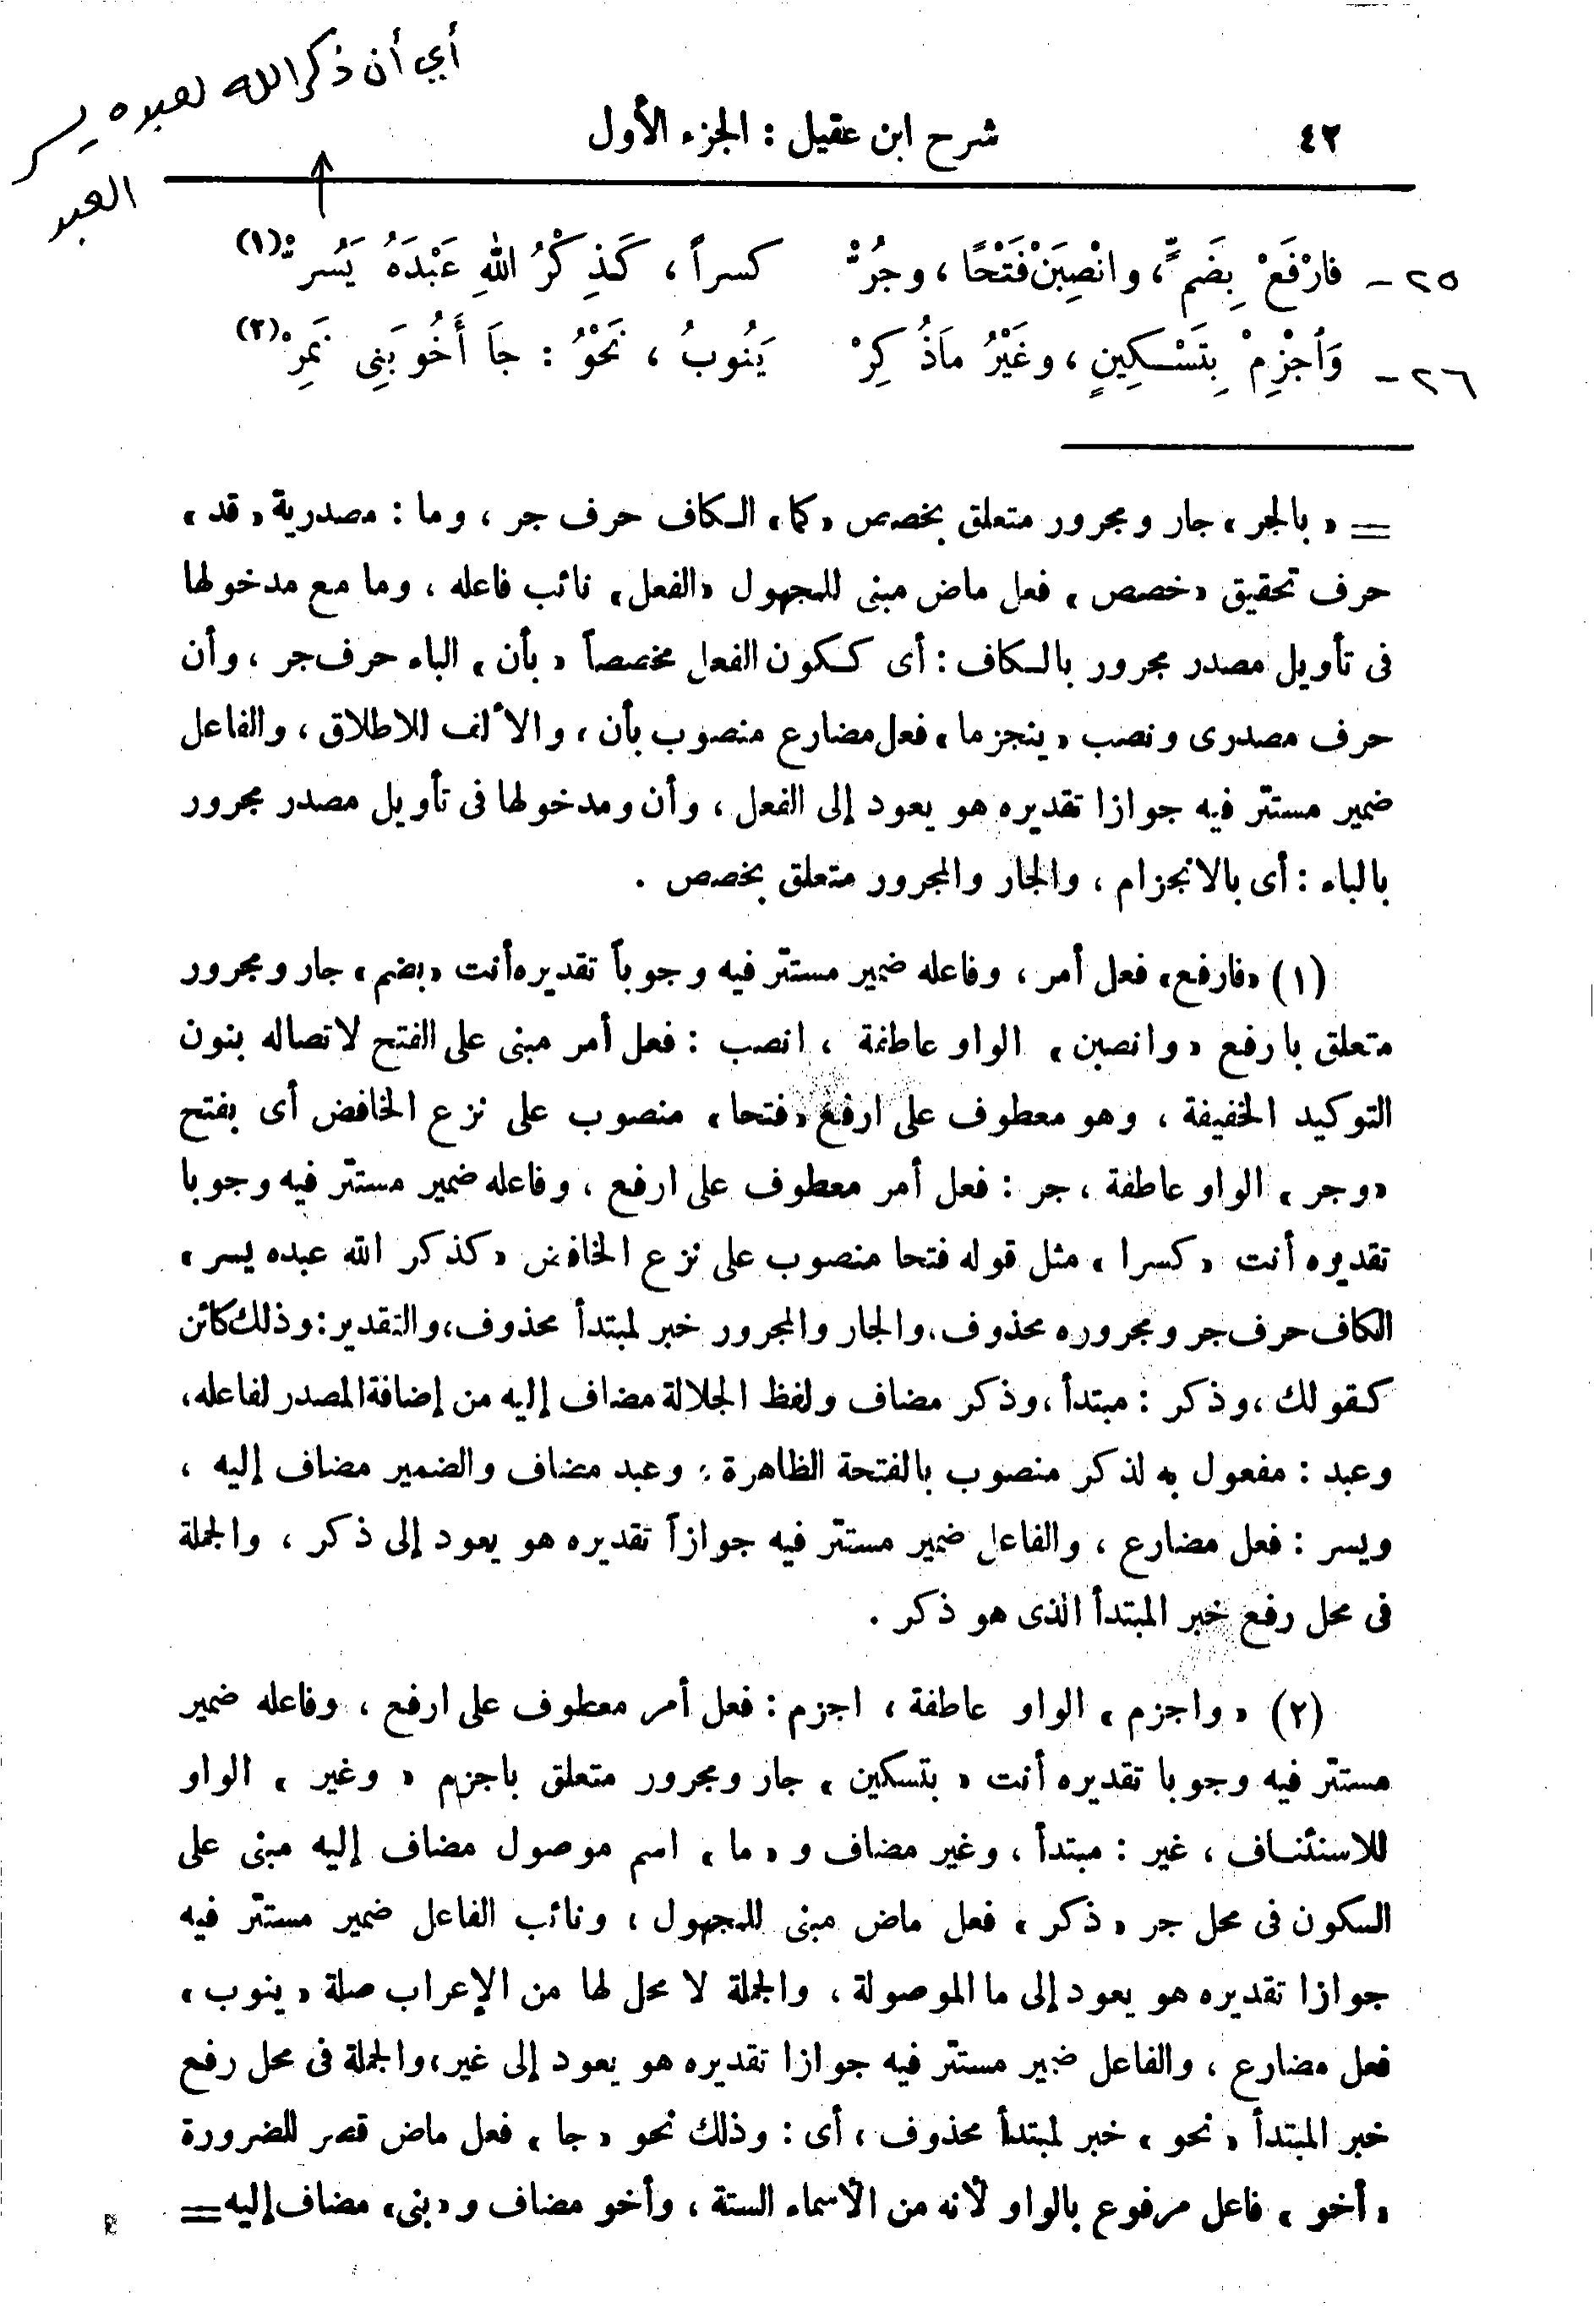 أي أن ذكر الله لعبده يسر
العبد
٤٢
شرح ابن عقيل : الجزء الأول
٢٥ – فارْفَعْ بِضَمٍّ، وانْصِبَنْ فَتْحًا، وجُرّْ كسراً ، كَذِكْرُ اللهِ عَبْدَهُ يَسُرّْ (١)
٢٦ – وَاجْزِمْ بِتَسْكِينٍ ، وغَيْرُ مَاذُ كِرْ يَنُوبُ ، نَحْوُ : جَا أَخُو بَنِى نَمِرْ (٢)
= « بالجر » جار ومجرور متعلق بخصص « كما » الكاف حرف جر ، وما : مصدرية « قد »
حرف تحقيق « خصص » فعل ماض مبنى للمجهول « الفعل » نائب فاعله ، وما مع مدخولها
فى تأويل مصدر مجرور بالكاف : أى ككون الفعل مخصصاً « بأن » الباء حرف جر ، وأن
حرف مصدرى ونصب « ينجزما » فعل مضارع منصوب بأن ، والألف للاطلاق ، والفاعل
ضمير مستتر فيه جوازا تقديره هو يعود إلى الفعل ، وأن ومدخولها فى تأويل مصدر مجرور
بالباء : أى بالانجزام ، والجار والمجرور متعلق بخصص .
(١) « فارفع » فعل أمر ، وفاعله ضمير مستتر فيه وجوباً تقديره أنت « بضم » جار ومجرور
متعلق بارفع « وانصبن » الواو عاطفة ، انصب : فعل أمر مبنى على الفتح لاتصاله بنون
التوكيد الخفيفة ، وهو معطوف على ارفع « فتحا » منصوب على نزع الخافض أى بفتح
« وجر » الواو عاطفة ، جر : فعل أمر معطوف على ارفع ، وفاعله ضمير مستتر فيه وجوبا
تقديره أنت « كسرا » مثل قوله فتحا منصوب على نزع الخافض « كذكر الله عبده يسر »
الكاف حرف جر ومجروره محذوف، والجار والمجرور خبر لمبتدأ محذوف، والتقدير: وذلك كائن
كقولك ، وذكر : مبتدأ ، وذكر مضاف ولفظ الجلالة مضاف إليه من إضافة المصدر لفاعله،
وعبد : مفعول به لذكر منصوب بالفتحة الظاهرة ، وعبد مضاف والضمير مضاف إليه ،
ويسر : فعل مضارع ، والفاعل ضمير مستتر فيه جوازاً تقديره هو يعود إلى ذكر ، والجملة
فى محل رفع خبر المبتدأ الذى هو ذكر .
(٢) « واجزم » الواو عاطفة ، اجزم : فعل أمر معطوف على ارفع ، وفاعله ضمير
مستتر فيه وجوبا تقديره أنت « بتسكين » جار ومجرور متعلق باجزم « وغير » الواو
للاستئناف ، غير : مبتدأ ، وغير مضاف و « ما » اسم موصول مضاف إليه مبنى على
السكون فى محل جر « ذكر » فعل ماض مبنى للمجهول ، ونائب الفاعل ضمير مستتر فيه
جوازا تقديره هو يعود إلى ما الموصولة ، والجملة لا محل لها من الإعراب صلة « ينوب »
فعل مضارع ، والفاعل ضمير مستتر فيه جوازا تقديره هو يعود إلى غير، والجملة فى محل رفع
خبر المبتدأ « نحو » خبر لمبتدأ محذوف ، أى : وذلك نحو « جا » فعل ماض قصر للضرورة
« أخو » فاعل مرفوع بالواو لأنه من الأسماء الستة ، وأخو مضاف و « بنى » مضاف إليه =